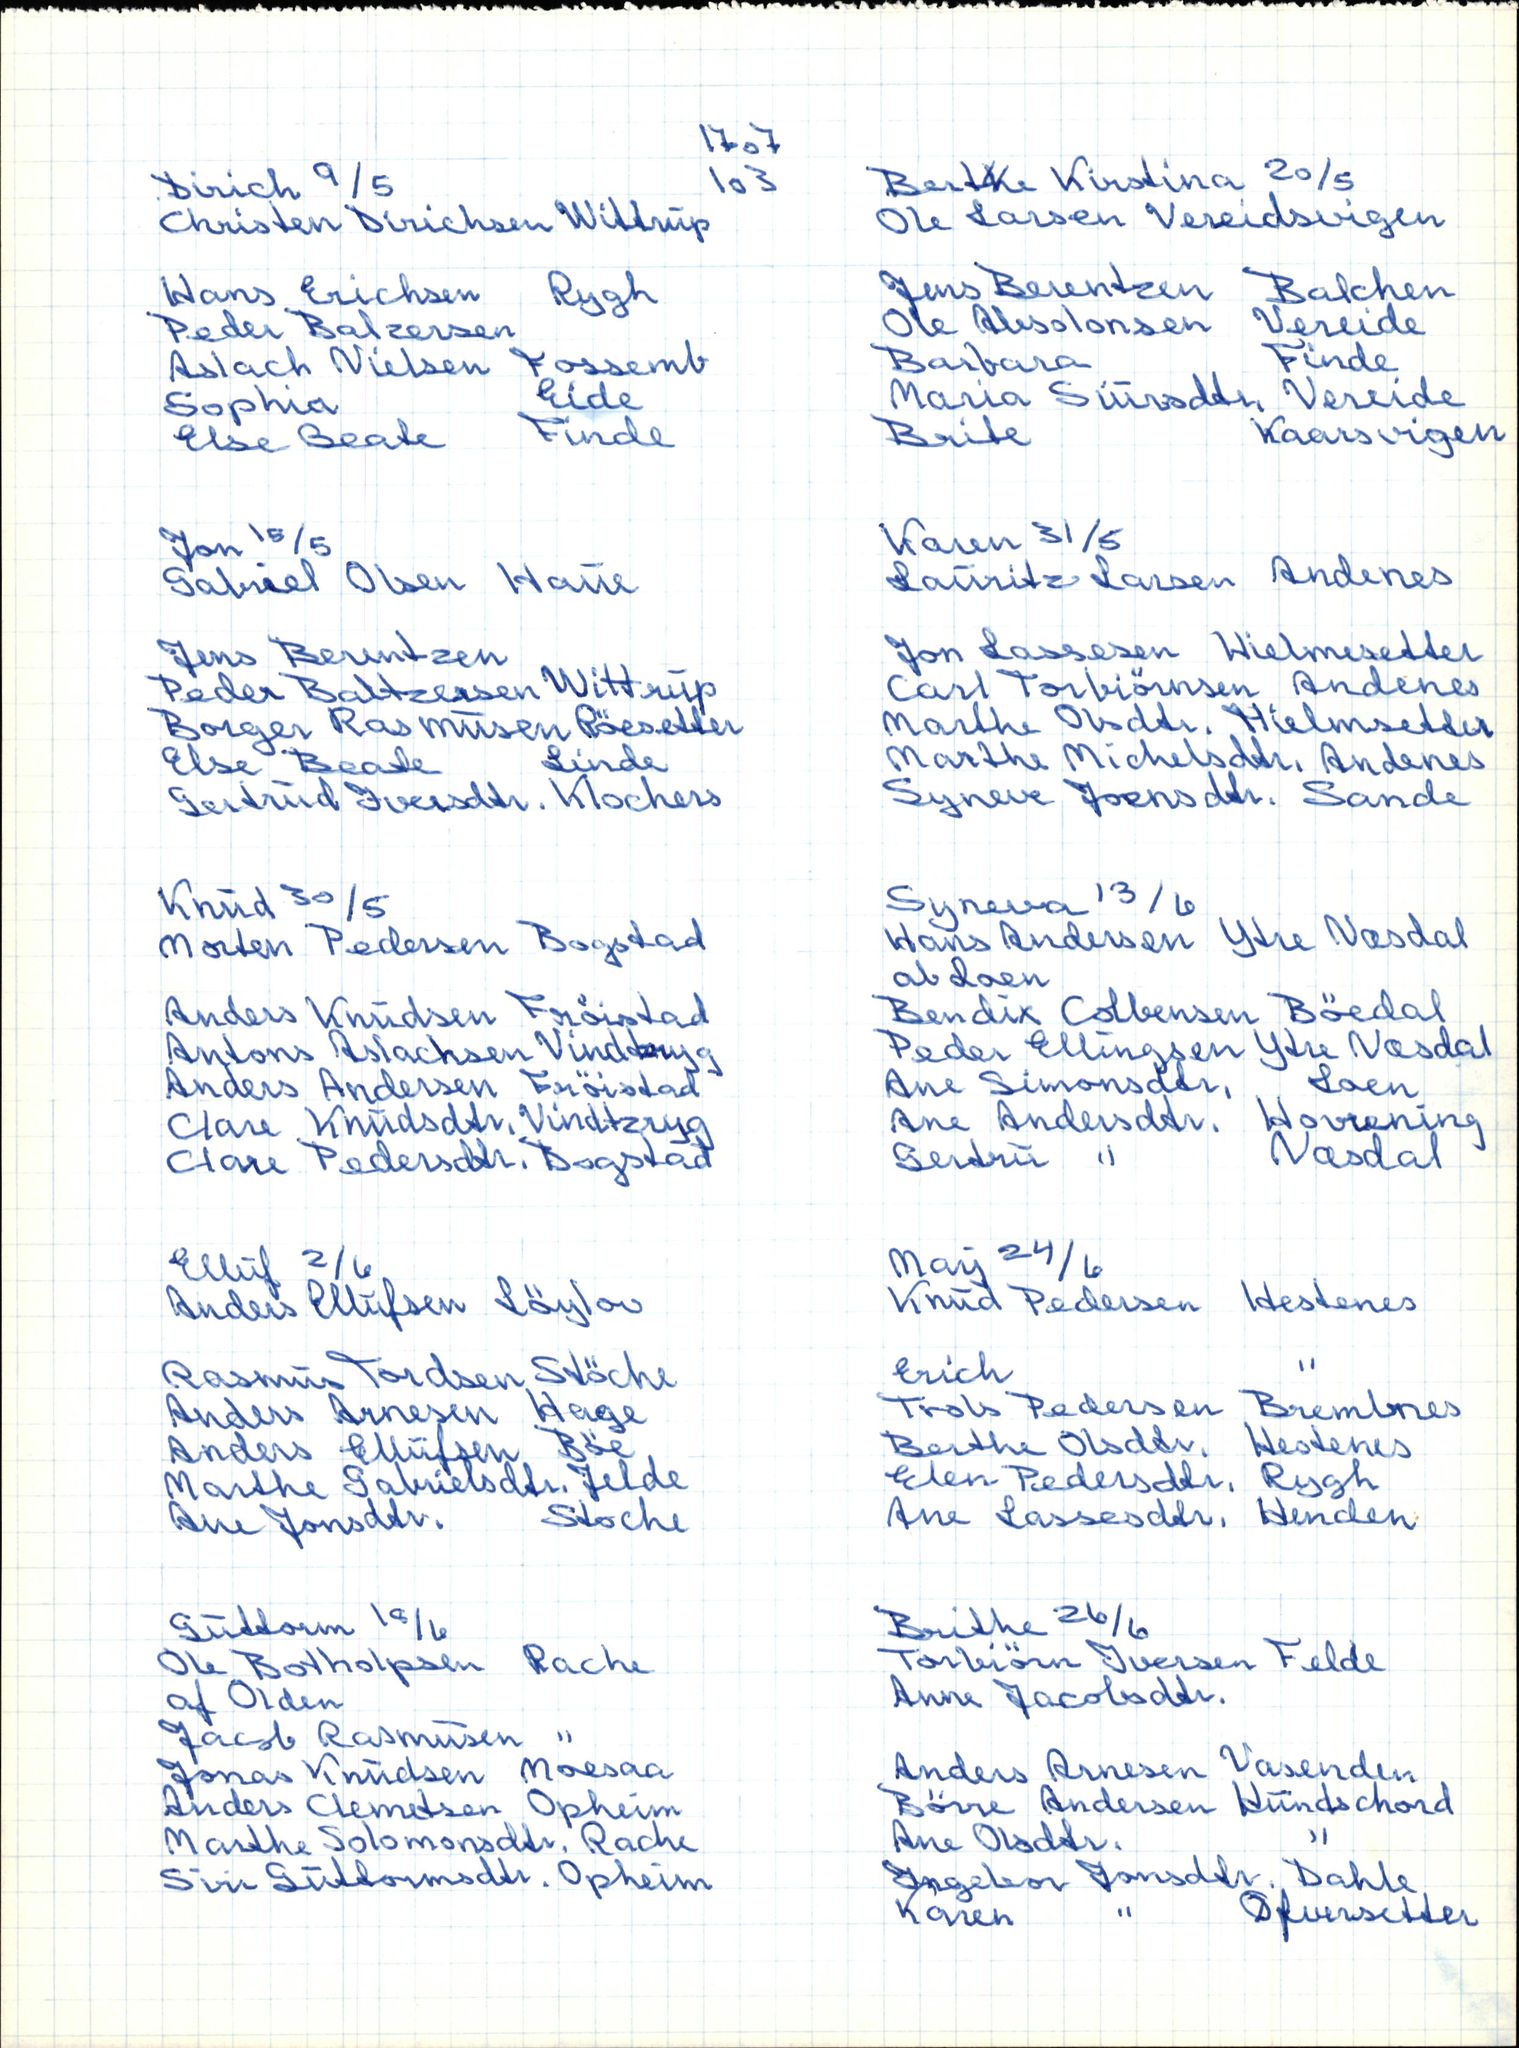 1707
103
Dirich 9/5
Christen Dirichsen Wittrup
Hans Erichsen Rygh
Peder Balzersen
Aslach Nielsen Fossemb
Sophia Eide
Else Beate Finde
Jon 15/5
Gabriel Olsen Haüe
Jens Berentzen
Peder Baltzersen Wittrüp
Borger Rasmüsen Röesetter
Else Beate Linde
Gertrüd Iversdtr. Klochers
Knüd 30/5
Morten Pedersen Bogstad
Anders Knüdsen Fröistad
Antons Aslachsen Vindtzryg
Anders Andersen Fröistad
Clare Knüdsdtr. Vindtzryg
Clare Pedersdtr. Bogstad
Ellüf 2/6
Anders Ellüfsen Löylov
Rasmüs Tordsen Stöche
Anders Arnesen Hage
Anders Ellüfsen Böe
Marthe Gabrielsdtr. Felde
Ane Jonsdtr. Stoche
Güttorm /6
Ole Botholpsen Rache
af Olden
Jacob Rasmüsen "
Jonas Knüdsen Moesaa
Anders Clemetsen Opheim
Marthe Solomonsdtr. Rache
Siri Güttormsdtr. Opheim
Berthe Kirstina 20/5
Ole Larsen Vereidsvigen
Jens Berentzen Balchen
Ole Absolonsen Vereide
Barbara Finde
Maria Siürsdtr. Vereide
Brite Kaarsvigen
Karen 31/5
Laüritz Larsen Andenes
Jon Lassesen Hielmesetter
Carl Torbiörnsen Andenes
Marthe Olsdtr. Hielmsetter
Marthe Michelsdtr. Andenes
Syneve Joensdtr. Sande
Syneva 13/6
Hans Andersen Ytre Næsdal
ab Loen
Bendix Colbensen Böedal
Peder Ellingsen Ytre Næsdal
Ane Simonsdtr. Loen
Ane Andersdtr. Hovrening
Gertrü " Næsdal
Marj 24/6
Knüd Pedersen Hestenes
Erich "
Trols Pedersen Brembnes
Berthe Olsdtr. Hestenes
Elen Pedersdtr. Rygh
Ane Lassesdtr. Henden
Brithe 26/6
Torbiörn Iversen Felde
Anne Jacobsdtr.
Anders Arnesen Vasenden
Börre Andersen Hündschord
Ane Olsdtr. "
Ingebor Jonsdtr. Dahle
Karen " Ofversetter